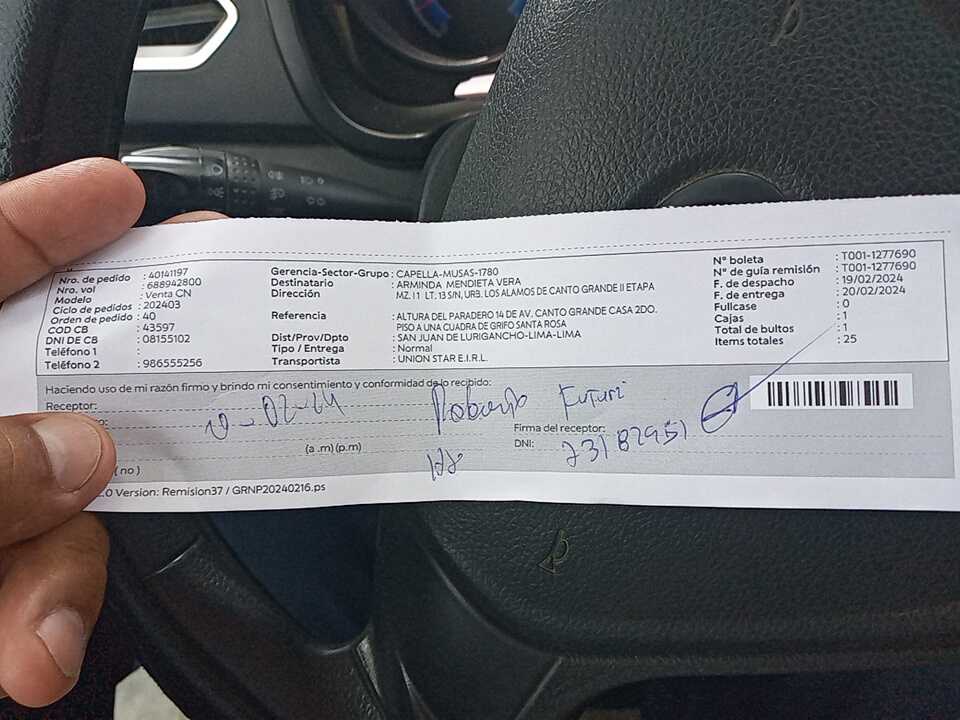 Nro. de pedido : 40141197
Nro. vol : 688942800
Modelo : Venta CN
Ciclo de pedidos : 202403
Orden de pedido : 40
COD CB : 43597
DNI DE CB : 08155102
Teléfono 1 :
Teléfono 2 : 986555256
Gerencia-Sector-Grupo : CAPELLA-MUSAS-1780
Destinatario : ARMINDA MENDIETA VERA
Dirección MZ. I 1 LT. 13 S/N, URB. LOS ALAMOS DE CANTO GRANDE II ETAPA
Referencia : ALTURA DEL PARADERO 14 DE AV. CANTO GRANDE CASA 2DO.
PISO A UNA CUADRA DE GRIFO SANTA ROSA
Dist/Prov/Dpto : SAN JUAN DE LURIGANCHO-LIMA-LIMA
Tipo / Entrega : Normal
Transportista : UNION STAR E.I.R.L.
N° boleta : T001-1277690
N° de guía remisión : T001-1277690
F. de despacho : 19/02/2024
F. de entrega : 20/02/2024
Fullcase : 0
Cajas : 1
Total de bultos : 1
Items totales : 25
Haciendo uso de mi razón firmo y brindo mi consentimiento y conformidad de lo recibido:
Receptor: Roberto
-02-24
Firma del receptor:
(a .m) (p.m)
DNI: 73182951
( no )
.0 Version: Remision37 / GRNP20240216.ps